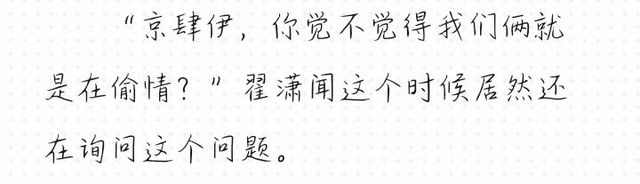 “京肆伊，你觉不觉得我们俩就
是在偷情？”翟潇闻这个时候居然还
在询问这个问题。